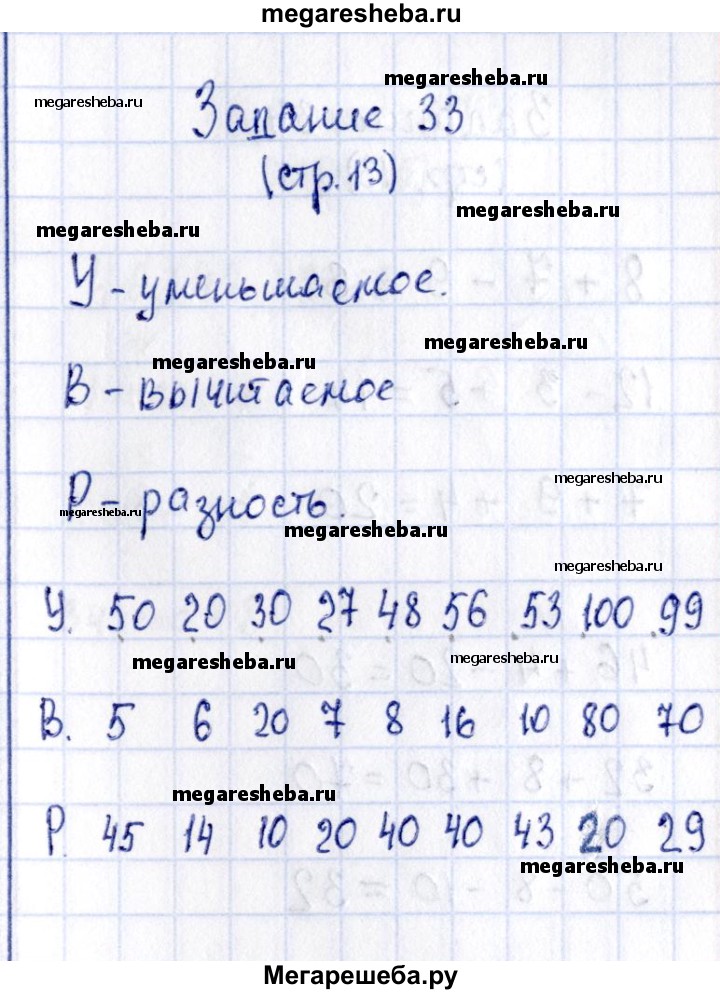 megaresheba.ru
megaresheba.ru
megaresheba.ru
Задание 33
(стр. 13)
megaresheba.ru
megaresheba.ru
У - уменьшаемое.
megaresheba.ru
megaresheba.ru
В - вычитаемое
megaresheba.ru
Р - разность.
megaresheba.ru
megaresheba.ru
megaresheba.ru
У. 50 20 30 27 48 56 53 100 99
megaresheba.ru
megaresheba.ru
В. 5 6 20 7 8 16 10 80 70
megaresheba.ru
Р. 45 14 10 20 40 40 43 20 29
megaresheba.ru
Мегарешеба.ру